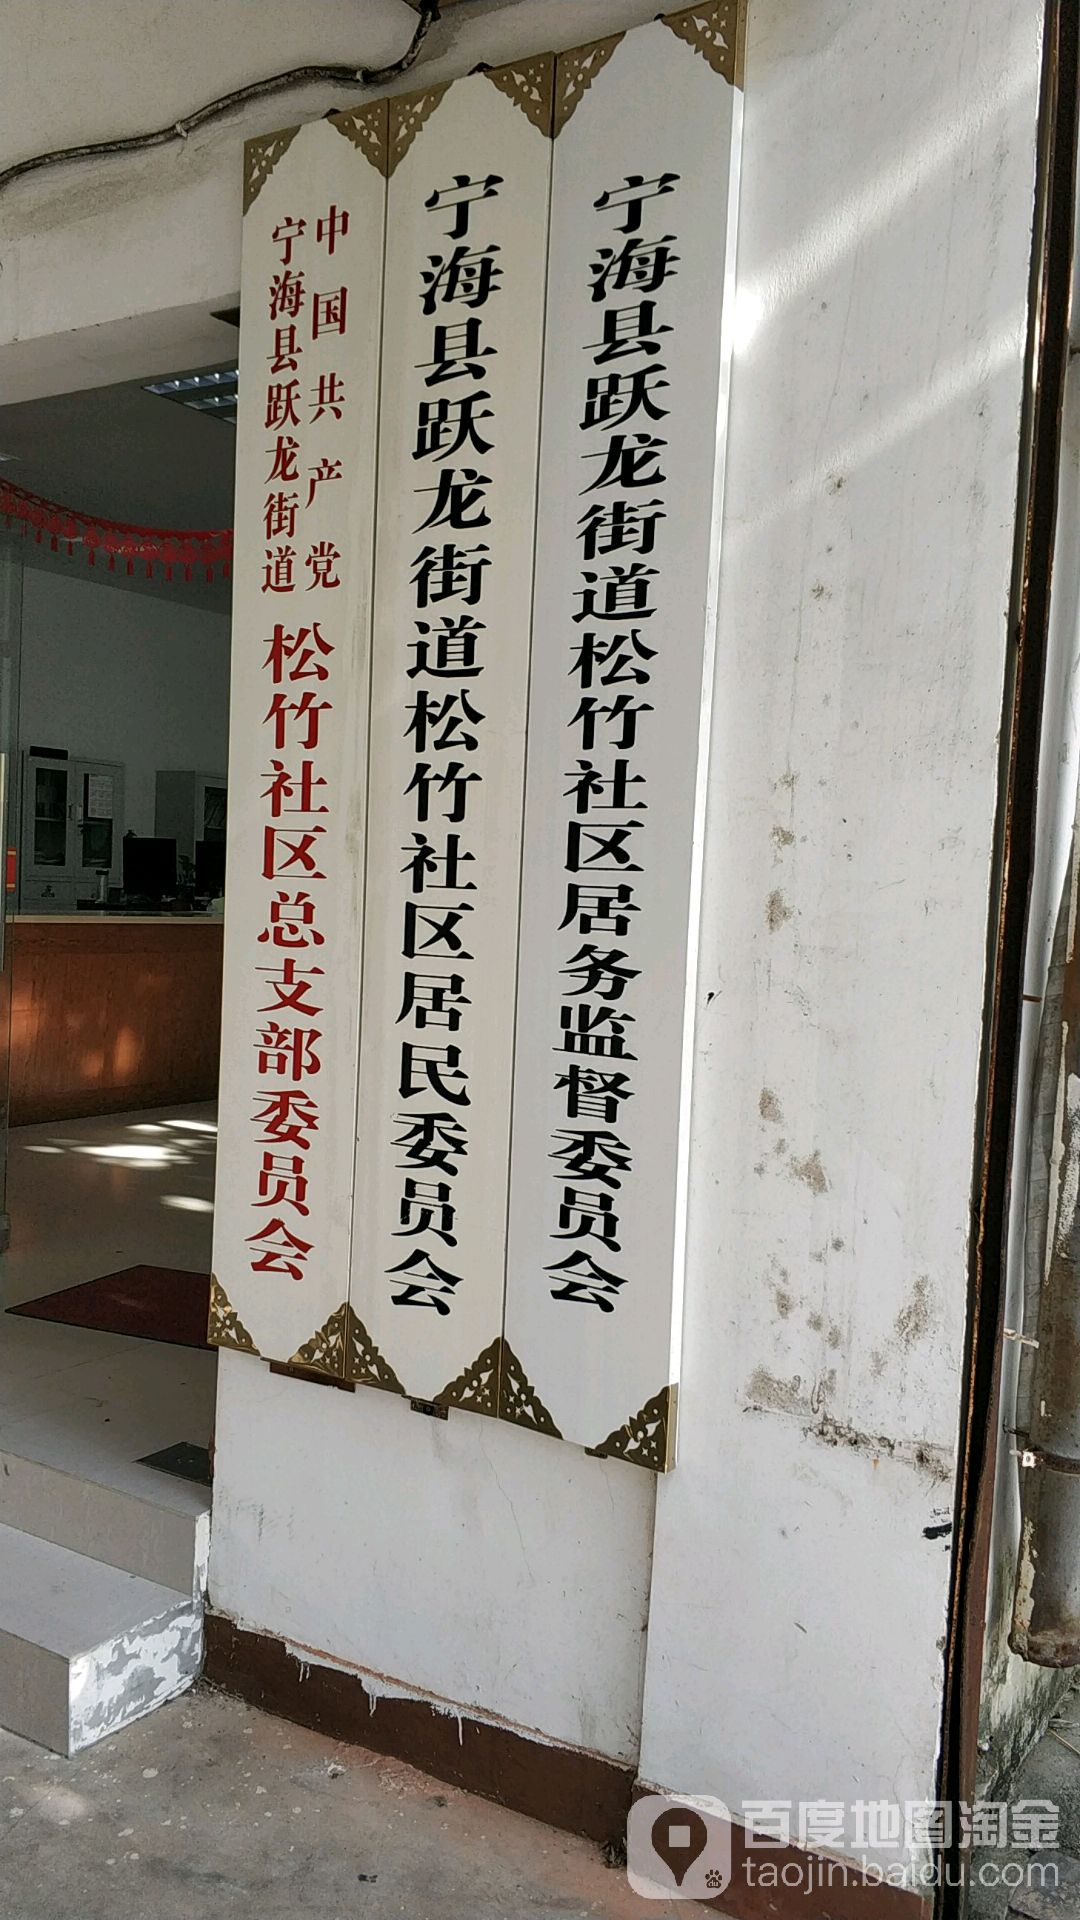 中国共产党
宁海县跃龙街道
松竹社区总支部委员会
宁海县跃龙街道松竹社区居民委员会
宁海县跃龙街道松竹社区居务监督委员会
百度地图淘金
taojin.baidu.com